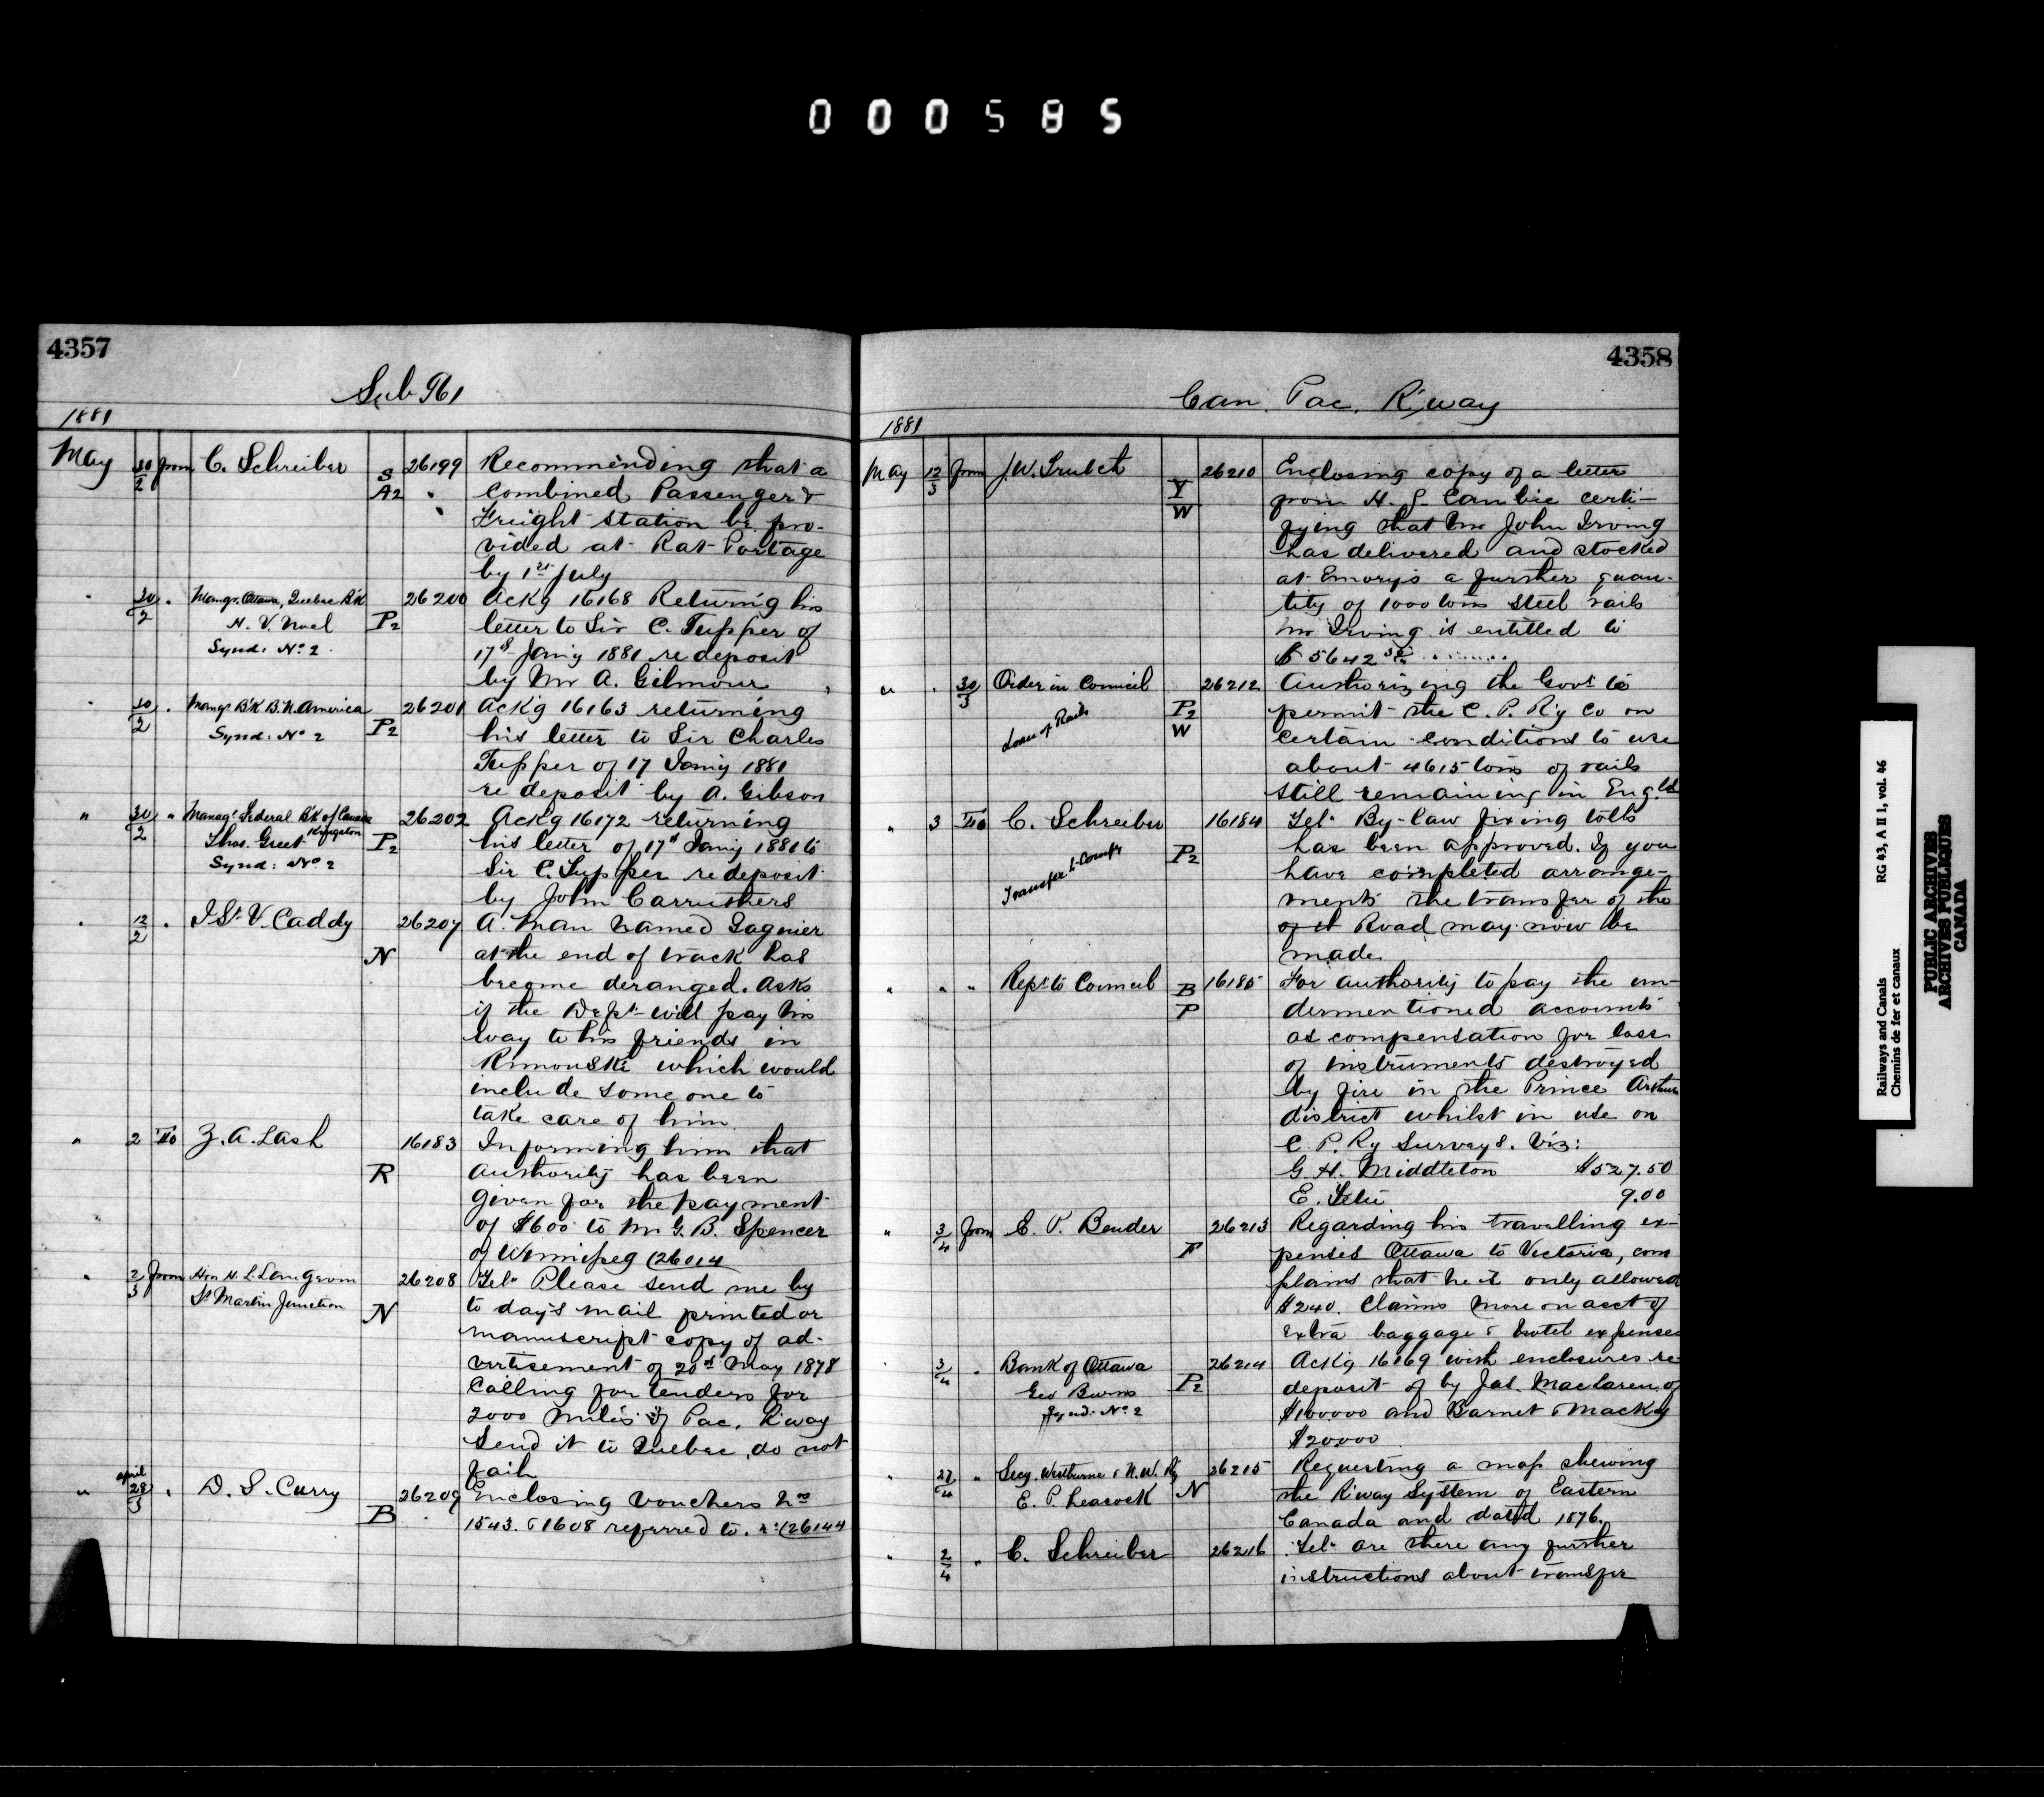 000585
4357
Sub 961
1881
May 30/2 from C. Schreiber S A2 26199 Recommending that a
combined Passenger &
Freight Station be pro-
vided at Rat Portage
by 1st July
" 30/2 " Mangr. Ottawa, Quebec B'k 26200 Ackg 16168 Return'g his
H. V. Noel P2 letter to Sir C. Tupper of
Synd: No 2. 17th Jan'y 1881 re deposit
by Mr A. Gilmour
" 30/2 " Mangr B'k B. N. America 26201 Ackg 16163 returning
Synd: No 2 P2 his letter to Sir Charles
Tupper of 17 Jan'y 1881
re deposit by A. Gibson
" 30/2 " Managr Federal B'k of Canada 26202 Ackg 16172 returning
Kingston
Thos. Greet P2 his letter of 17th Jan'y 1881 to
Synd: No 2 Sir C. Tupper re deposit
by John Carruthers
" 12/2 " J St V. Caddy 26207 A man named Gagnier
N at the end of track has
become deranged. Asks
if the Dept will pay his
way to his friends in
Rimouski which would
include some one to
take care of him.
" 2 To Z. A. Lash 16183 Informing him that
R authority has been
given for the payment
of $600 to Mr G. B. Spencer
of Winnipeg (26014
" 2/3 from Hon H. L. Langevin 26208 Tel. Please send me by
St Martin Junction N to day's mail printed or
manuscript copy of ad-
vertisement of 20th May 1878
calling for tenders for
2000 miles of Pac. R'way
Send it to Quebec, do not
fail
" april 28/3 " D. S. Curry 26209 Enclosing vouchers Nos
B 1543. & 1608 referred to. (26144
4358
Can. Pac. R'way
1881
May 12/3 from J. W. Trutch 26210 Enclosing copy of a letter
Y W from H. J. Cambie certi-
fying that Mr John Irving
has delivered and stocked
at Emory's a further quan-
tity of 1000 tons steel rails
Mr Irving is entitled to
$5642
" " 30/3 Order in Council 26212 Authorizing the Govt to
Loan of Rails P2 W permit the C. P. R'y Co on
certain conditions to use
about 4615 tons of rails
still remaining in Engld
" 3 To C. Schreiber 16184 Tel. By-law fixing tolls
Transfer to Compy P2 has been approved. If you
have completed arrange-
ments the transfer of the
of it Road may now be
made.
" " " Rept to Council B P 16185 For authority to pay the un-
dermentioned accounts
as compensation for loss
of instruments destroyed
by fire in the Prince Arthur
district whilst in use on
C. P. Ry Surveys. Viz:
G. H. Middleton $527.50
E. 9.00
" 3/4 from E. P. Bender 26213 Regarding his travelling ex-
F penses Ottawa to Victoria, com
plains that he is only allowed
$240. Claims more on acct of
extra baggage & hotel expenses
" 3/4 " Bank of Ottawa 26214 Ackg 16169 with enclosures re
Geo Burns P2 deposit of by Jas. Maclaren of
Synd: No 2 $100000 and Barnet & Mackay
$20000
" 27/4 " Secy. Westburne & N. W. Ry 26215 Requesting a map shewing
E. P. Leacock N the R'way System of Eastern
Canada and dated 1876.
" 2/4 " C. Schreiber 26216 Tel. Are there any further
instructions about transfer
Railways and Canals RG 43, A II 1, vol. 46
Chemins de fer et canaux
PUBLIC ARCHIVES
ARCHIVES PUBLIQUES
CANADA